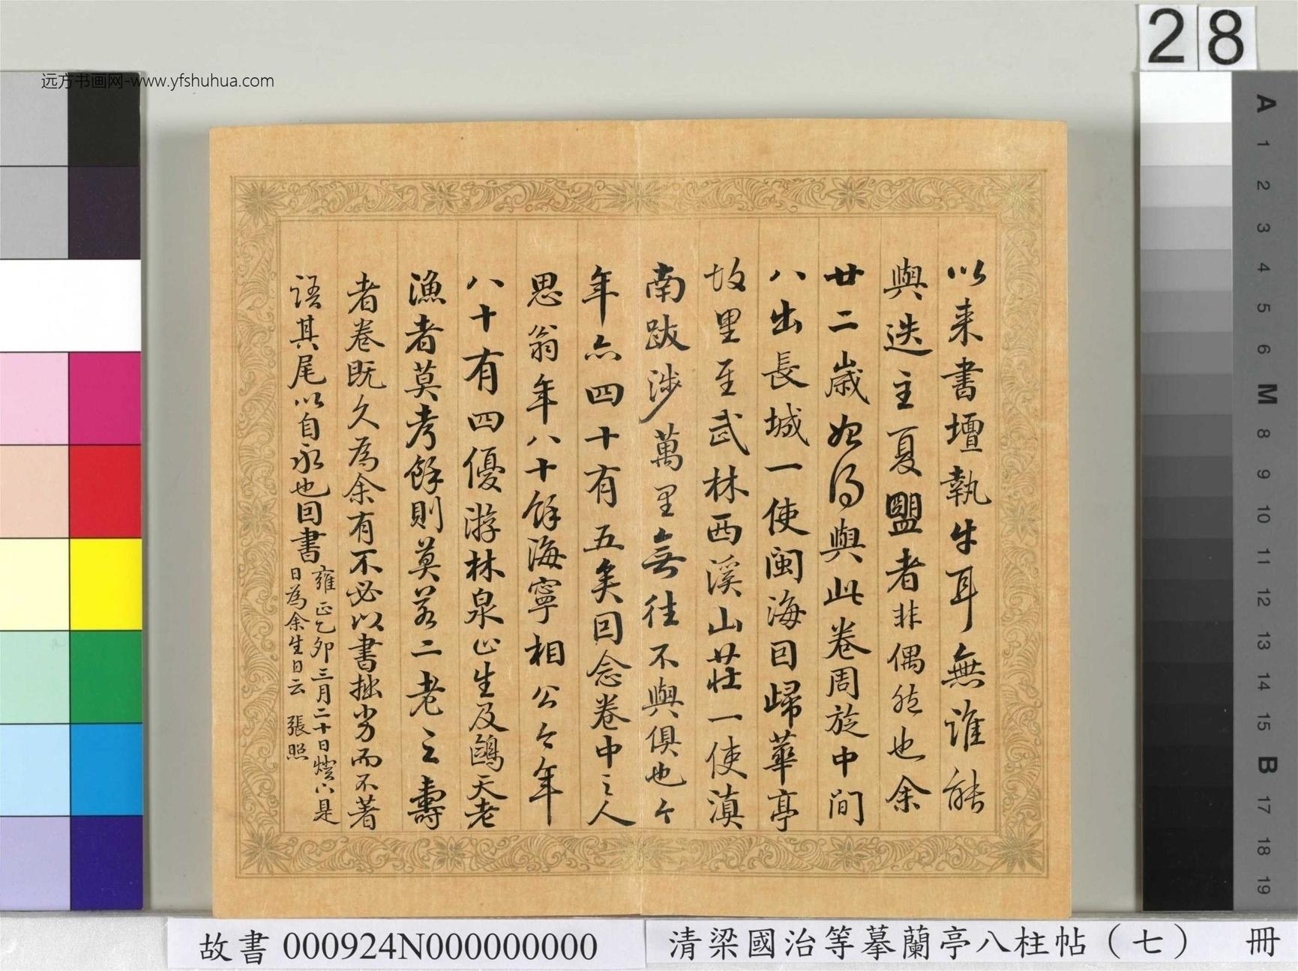 远方书画网-www.yfshuhua.com
28
以来書壇執牛耳無誰能
與迭主夏盟者非偶然也余
廿二歲始得與此卷周旋中間
八出長城一使閩海回歸華亭
故里至武林西溪山莊一使滇
南跋涉萬里無往不與俱也今
年亦四十有五矣回念卷中之人
思翁年八十餘海寧相公今年
八十有四優游林泉
生及鷗天老
漁者莫考餘則莫若二老之壽
者卷既久為余有不必以書拙劣而不著
語其尾以自永也回書
雍正乙卯三月二十日
是
日為余生日云 張照
A 1 2 3 4 5 6 M 8 9 10 11 12 13 14 15 B 17 18 19
故書 000924N000000000
清梁國治等摹蘭亭八柱帖（七） 冊